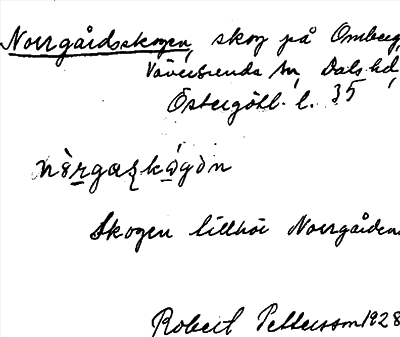 Norrgårdsskogen, skog på Omberg,
Väversunda sn, Dals hd,
Östergötl. l. 35
nòrgaʂkógən
Skogen tillhör Norrgården
Robert Pettersson 1928